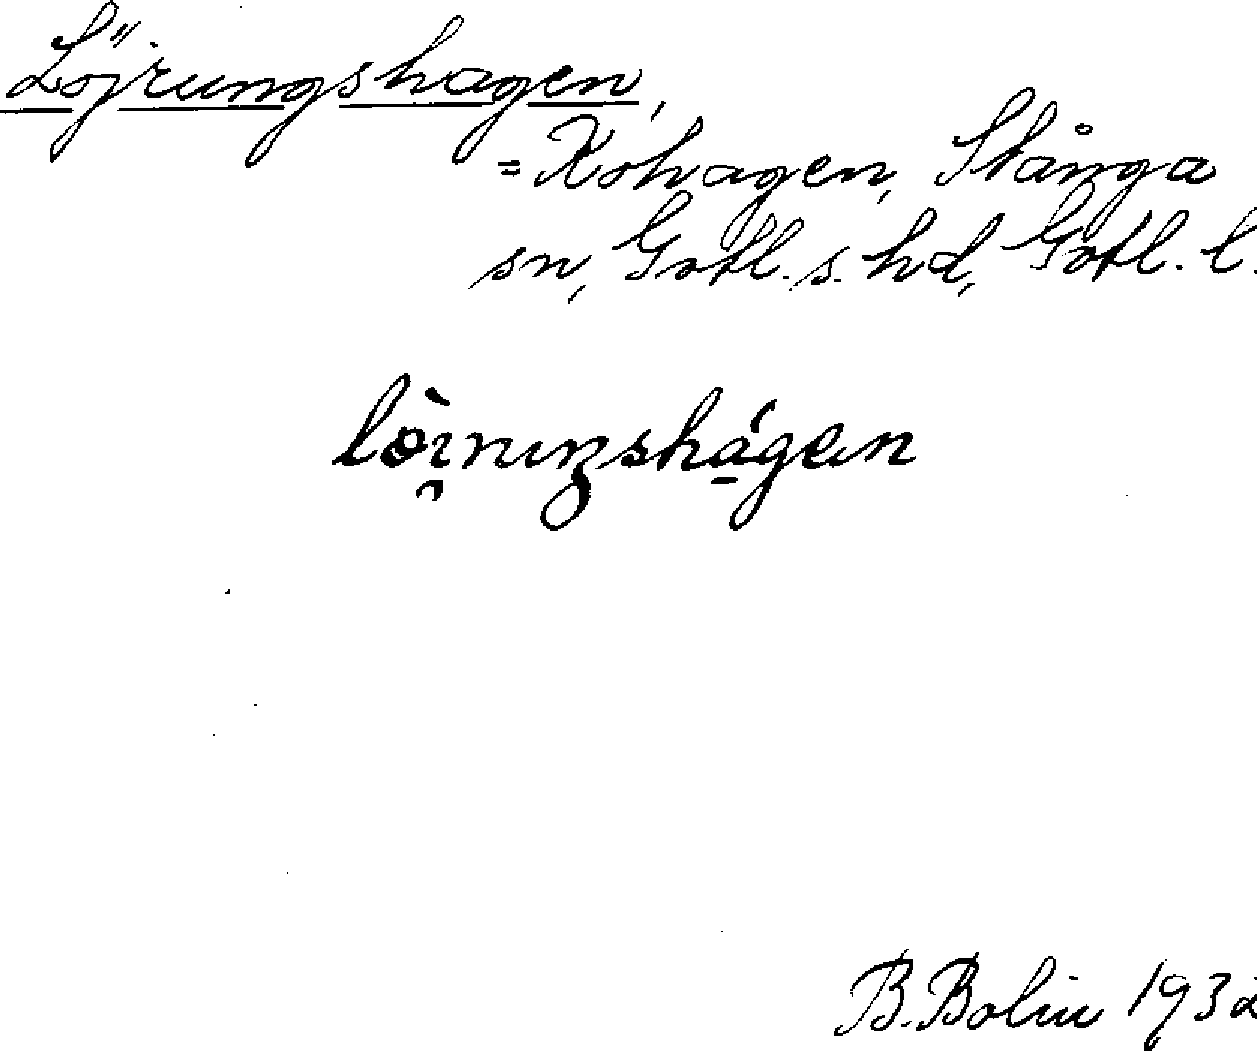 Löjrungshagen,
=Kohagen, Stånga
sn, Gotl. s. hd, Gotl. l.
B. Bolin 1932